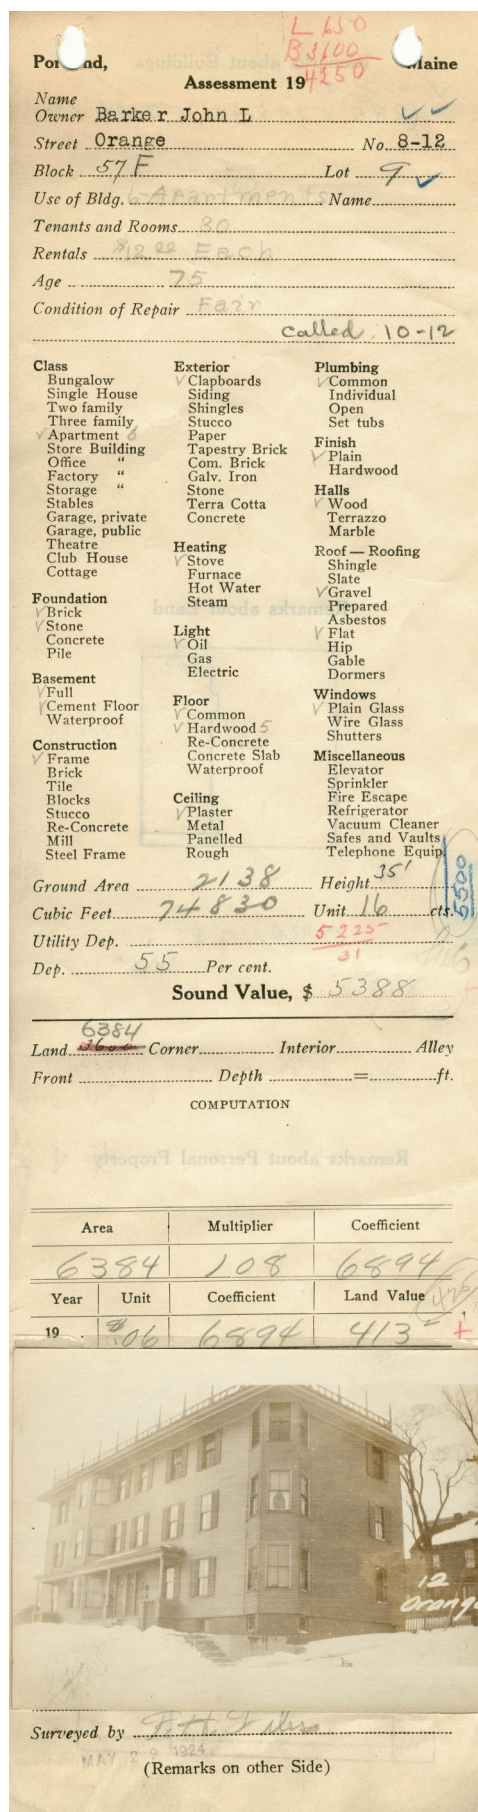 L 650
B 3600
4250
Portland, Maine
Assessment 19
Name
Owner Barker John L
Street Orange No. 8-12
Block 57 F Lot 9
Use of Bldg. 6-Apartments Name
Tenants and Rooms 30
Rentals $12.00 Each
Age 75
Condition of Repair Fair
called 10-12
Class
Bungalow
Single House
Two family
Three family
Apartment 6
Store Building
Office "
Factory "
Storage "
Stables
Garage, private
Garage, public
Theatre
Club House
Cottage
Foundation
Brick
Stone
Concrete
Pile
Basement
Full
Cement Floor
Waterproof
Construction
Frame
Brick
Tile
Blocks
Stucco
Re-Concrete
Mill
Steel Frame
Exterior
Clapboards
Siding
Shingles
Stucco
Paper
Tapestry Brick
Com. Brick
Galv. Iron
Stone
Terra Cotta
Concrete
Heating
Stove
Furnace
Hot Water
Steam
Light
Oil
Gas
Electric
Floor
Common
Hardwood 5
Re-Concrete
Concrete Slab
Waterproof
Ceiling
Plaster
Metal
Panelled
Rough
Plumbing
Common
Individual
Open
Set tubs
Finish
Plain
Hardwood
Halls
Wood
Terrazzo
Marble
Roof — Roofing
Shingle
Slate
Gravel
Prepared
Asbestos
Flat
Hip
Gable
Dormers
Windows
Plain Glass
Wire Glass
Shutters
Miscellaneous
Elevator
Sprinkler
Fire Escape
Refrigerator
Vacuum Cleaner
Safes and Vaults
Telephone Equip.
5500
Ground Area 2138 Height 35'
Cubic Feet 74830 Unit 16 cts.
Utility Dep. 5225
31
Dep. 55 Per cent.
Sound Value, $ 5388
6384
Land 3600 Corner Interior Alley
Front Depth = ft.
COMPUTATION
Area Multiplier Coefficient
6384 108 6894
Year Unit Coefficient Land Value
425
19 $.06 6894 413
12
Orange
Surveyed by
MAY 29 1924
(Remarks on other Side)